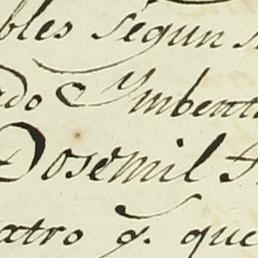 bles segun
ado Ymbent
Dosemil
atro q. que